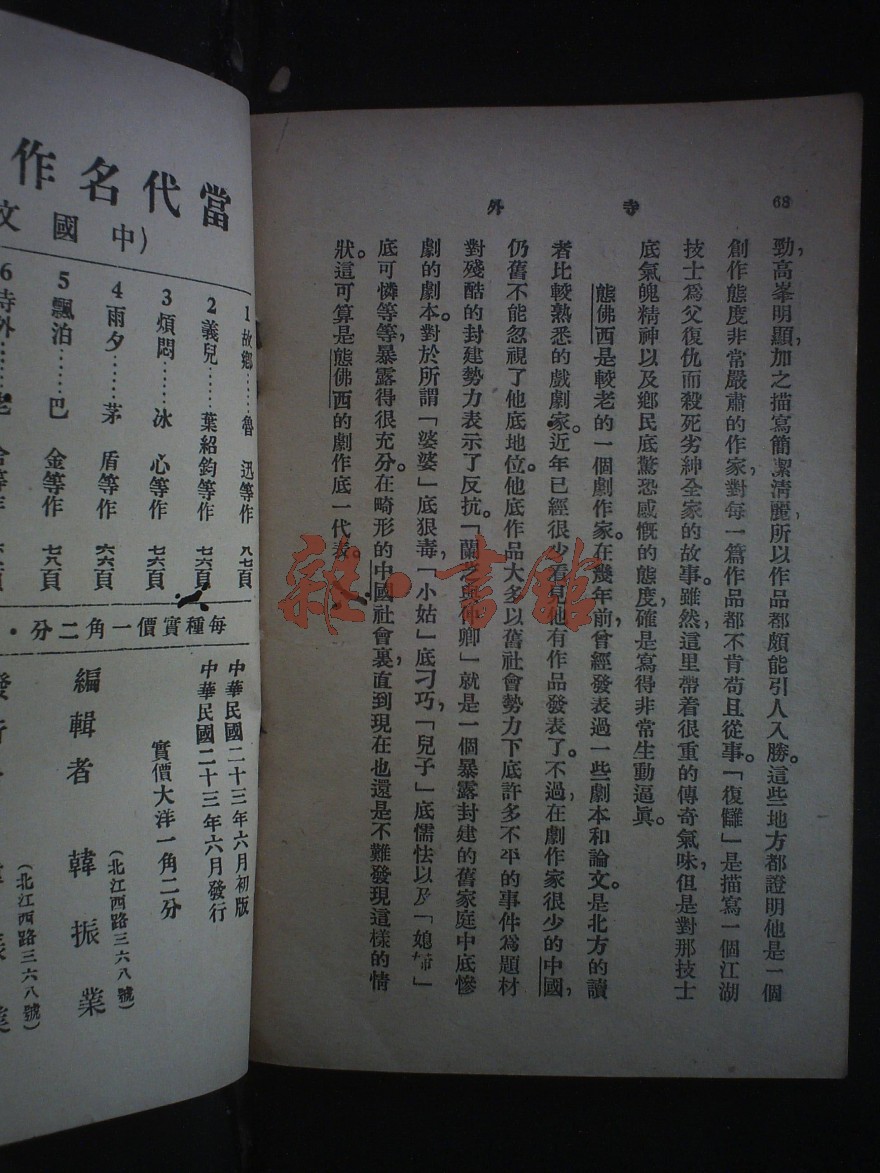 68
寺外
勁,高峯明顯,加之描寫簡潔淸麗,所以作品都頗能引人入勝。這些地方都證明他是一個
創作態度非常嚴肅的作家,對每一篇作品都不肯苟且從事。「復讎」是描寫一個江湖
技士爲父復仇而殺死劣紳全家的故事。雖然,這里帶着很重的傳奇氣味,但是對那技士
底氣魄精神以及鄉民底驚恐感慨的態度,確是寫得非常生動逼眞。
熊佛西是較老的一個劇作家。在幾年前曾經發表過一些劇本和論文。是北方的讀
者比較熟悉的戲劇家。近年已經很少看見他有作品發表了。不過,在劇作家很少的中國,
仍舊不能忽視了他底地位。他底作品大多以舊社會勢力下底許多不平的事件爲題材
對殘酷的封建勢力表示了反抗。「蘭芝與仲卿」就是一個暴露封建的舊家庭中底慘
劇的劇本。對於所謂「婆婆」底狠毒,「小姑」底刁巧,「兒子」底懦怯以及「媳婦」
底可憐等等,暴露得很充分。在畸形的中國社會裏,直到現在也還是不難發現這樣的情
狀。這可算是熊佛西的劇作底一代表。
當代名作
(中國文
1 故鄉……魯迅等作 八七頁
2 義兒……葉紹鈞等作 七六頁
3 煩悶……冰心等作 七六頁
4 雨夕……茅盾等作 六六頁
5 飄泊……巴金等作 七八頁
6 寺外……舍等作 頁
每種實價一角二分·
中華民國二十三年六月初版
中華民國二十三年六月發行
實價大洋一角二分
編輯者 韓振業
(北江西路三六八號)
發行
(北江西路三六八號)
雜·書館